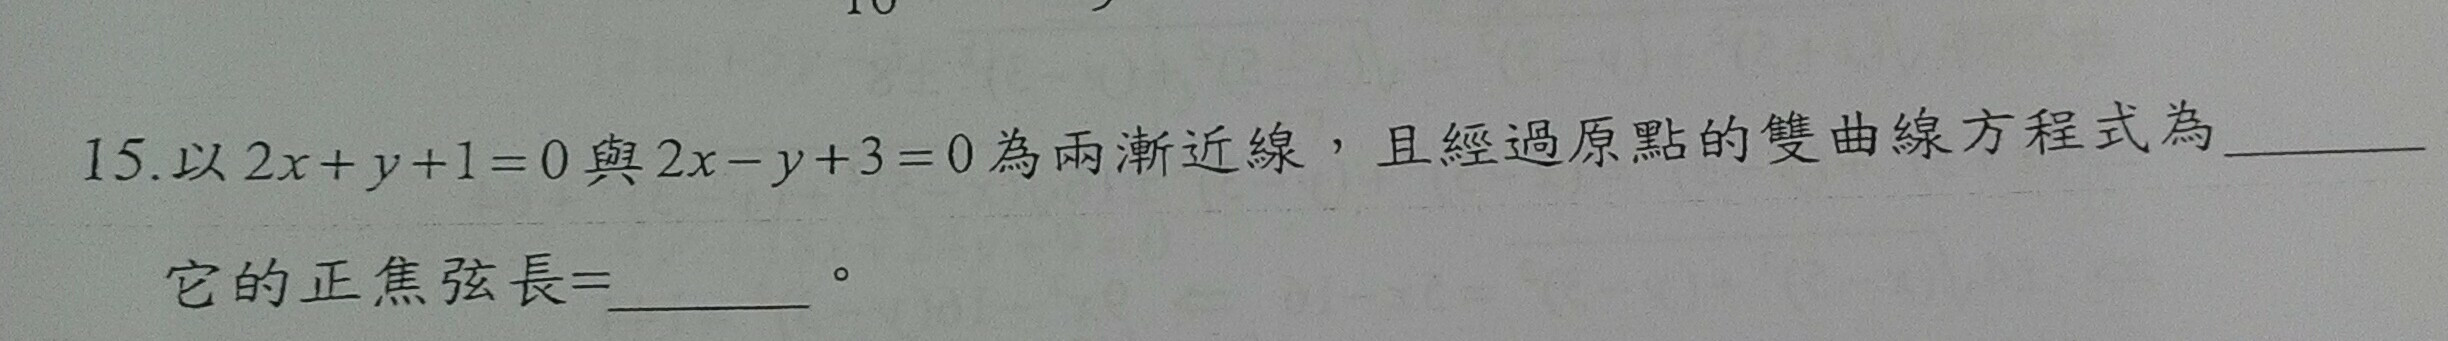 15.以2x+y+1=0與2x-y+3=0為兩漸近線，且經過原點的雙曲線方程式為______
它的正焦弦長=______。